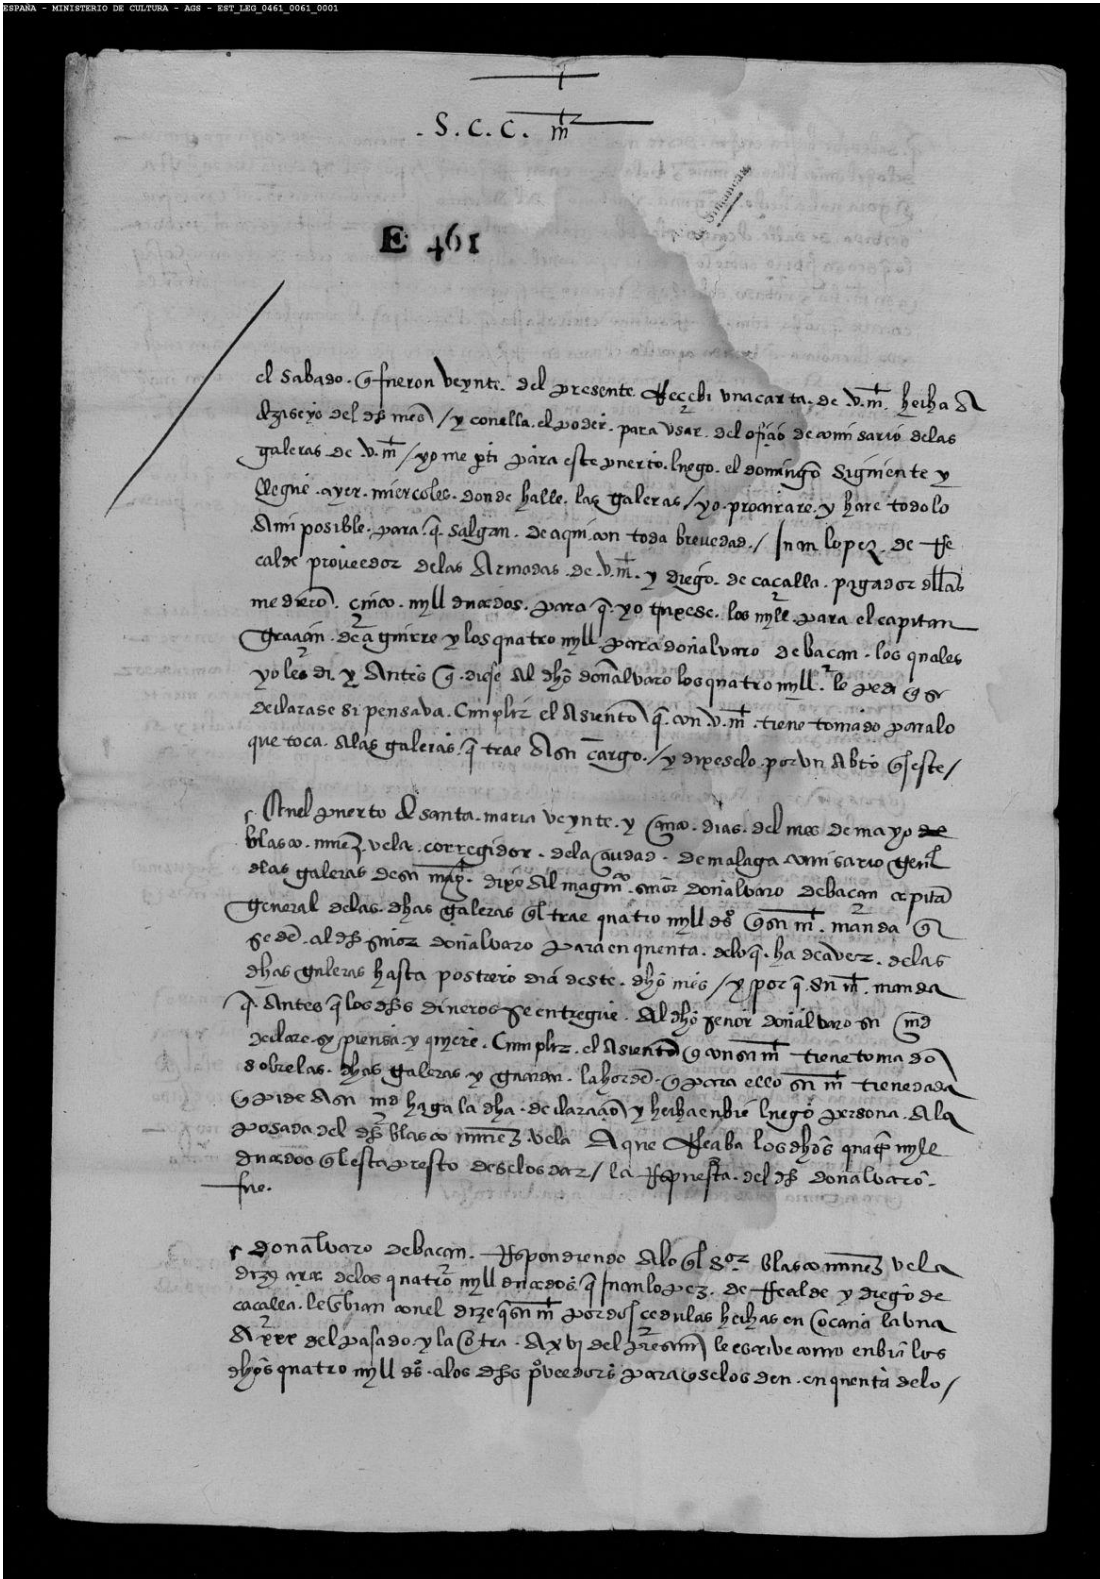 ESPAÑA - MINISTERIO DE CULTURA - AGS - EST_LEG_0461_0061_0001
. S. C. C. m̃t
E 461
el sabado. q̃ fueron veynte. del presente. Rrecebi una carta. de .v. mt. hecha A
diziseys del dho mes / y con ella. el poder. para usar. del ofiçio de comisario delas
galeras de v. mt / yo me parti para este puerto. luego. el domingo siguiente y
llegue. ayer. miercoles. donde halle. las galeras / yo. procurare. y hare todo lo
A mi posible. para. q̃. salgan. de aqui con toda brevedad. / Juan lopez. de Rre
calde proveedor delas Armadas. de .v. mt. y diego. de caçalla. pagador dellas
me dierõ. çinco. myll ducados. para q̃. yo truxese. los myll. para el capitan
graçian. de aguirre y los quatro myll para don alvaro de baçan. los quales
yo les di. y Antes q̃. diese Al dho don alvaro los quatro myll. le pedi q̃ se
declarase si pensava. Cunplir el Asiento q̃. con .v. mt. tiene tomado para lo
que toca. Alas galeras. q̃ trae A su cargo. / y dixeselo. por un Abto q̃s este /
Enel puerto de santa. maria veynte. y çinco. dias. del mes de mayo de
blasco. nuñez. vela. corregidor. dela çiudad. de malaga comisario genl
delas galeras de su magt. dixo Al magco. señor don alvaro de baçan capitã
general delas. dhas galeras q̃l trae quatro myll ds q̃ su mt. manda q̃
se dẽ. al dho señor don alvaro Para en quenta. delo q̃. ha de aver. delas
dhas galeras hasta postrero dia deste. dho mes / y por q̃. su mt. manda
q̃. Antes q̃ los dhos dineros se entregue. Al dho señor don alvaro su md
declare. sy piensa y quiere. Cunplir. el Asiento q̃ con su mt tiene tomado
sobre las. dhas galeras. y guardar. la hordẽ. q̃ para ello su mt tiene dada
q̃ pide A su md haga la dha. declaraçiõ y hecha enbie luego persona. A la
posada del dho blasco nuñez. vela A que Rreçiba los dhos quatro myll
ducados q̃l esta presto deselos dar / la Rrespuesta. del dho don alvaro.
fue.
don alvaro de baçan. Respondiendo A lo q̃l sor blasco nuñez vela
dize çerca delos quatro myll ducados. q̃ Juan lopez. de Rrecalde y diego de
caçalla. le enbian con el dize q̃ su mt por dos cedulas hechas en ocaña la una
A xxx del pasado. y la otra. A xvj del presente le escrive como enbia los
dhos quatro myll ds. a los dhos proveedores para q̃ selos den. en quenta delo /